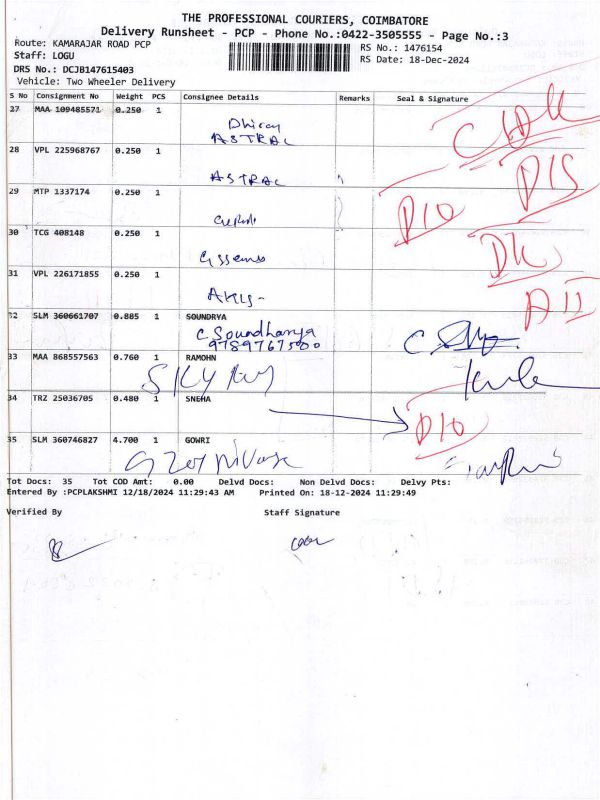 THE PROFESSIONAL COURIERS, COIMBATORE
Delivery Runsheet - PCP - Phone No.:0422-3505555 - Page No.:3
Route: KAMARAJAR ROAD PCP
RS No.: 1476154
Staff: LOGU
RS Date: 18-Dec-2024
DRS No.: DCJB147615403
Vehicle: Two Wheeler Delivery
S No Consignment No Weight PCS Consignee Details Remarks Seal & Signature
27 MAA 109485571 0.250 1
Dhiraj
ASTRAL
28 VPL 225968767 0.250 1
ASTRAL
29 MTP 1337174 0.250 1
D10
D15
30 TCG 408148 0.250 1
31 VPL 226171855 0.250 1
32 SLM 360661707 0.885 1 SOUNDRYA
C Soundharya
9789767500
33 MAA 868557563 0.760 1 RAMOHN
34 TRZ 25036705 0.480 1 SNEHA
D10
35 SLM 360746827 4.700 1 GOWRI
Tot Docs: 35 Tot COD Amt: 0.00 Delvd Docs: Non Delvd Docs: Delvy Pts:
Entered By :PCPLAKSHMI 12/18/2024 11:29:43 AM Printed On: 18-12-2024 11:29:49
Verified By Staff Signature